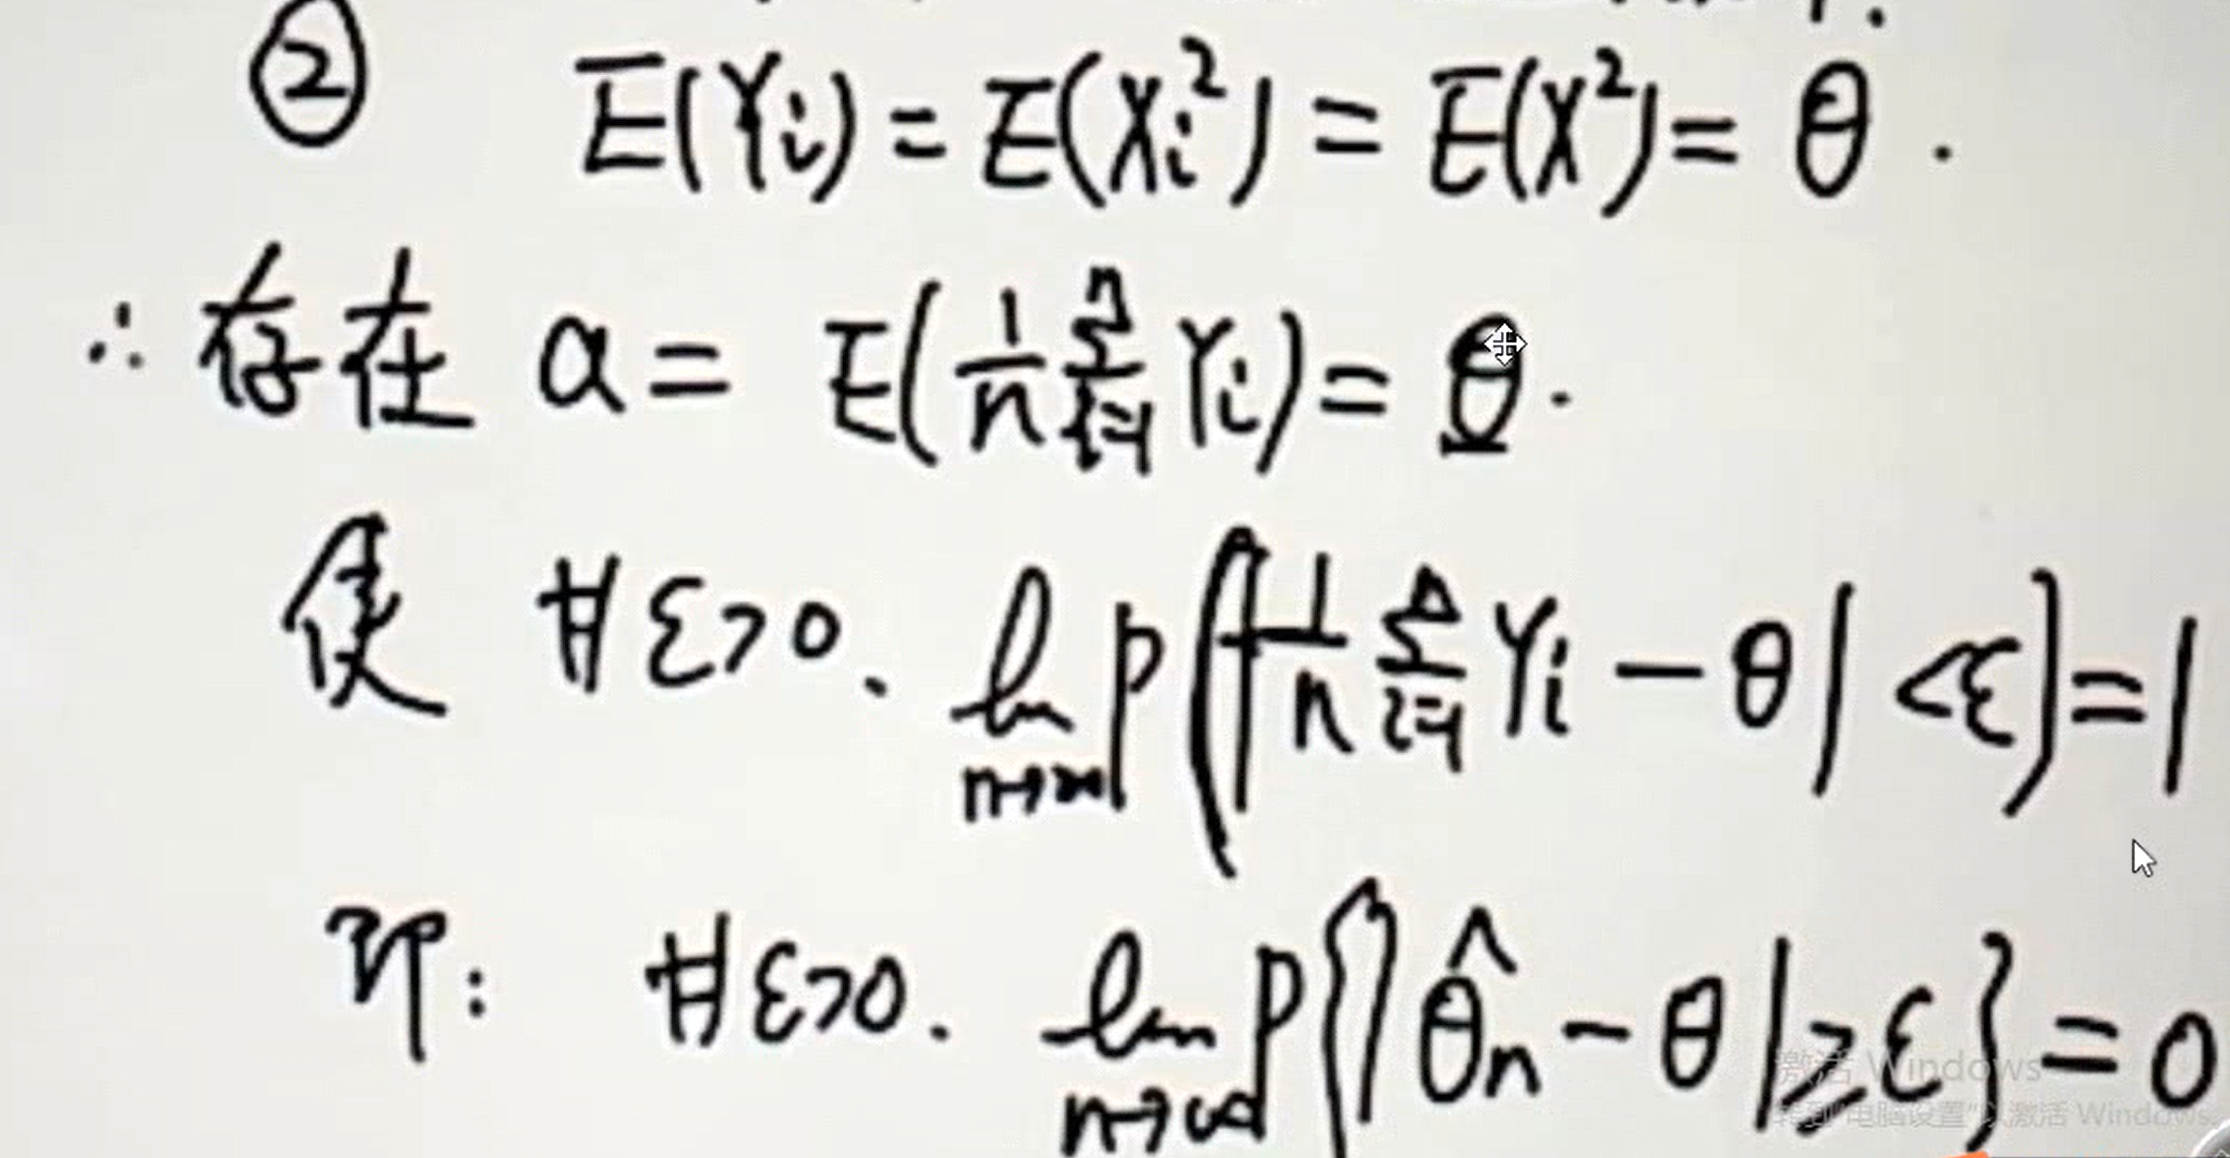 ② E(Yi) = E(Xi²) = E(X²) = θ .
∴ 存在 a = E(1/n ∑_{i=1}^{n} Yi) = θ .
使 ∀ε>0. lim_{n→∞} P(|1/n ∑_{i=1}^{n} Yi − θ| <ε) = 1
即: ∀ε>0. lim_{n→∞} P{|θ̂n − θ| ≥ε} = 0
激活 Windows
转到"电脑设置"以激活 Windows。